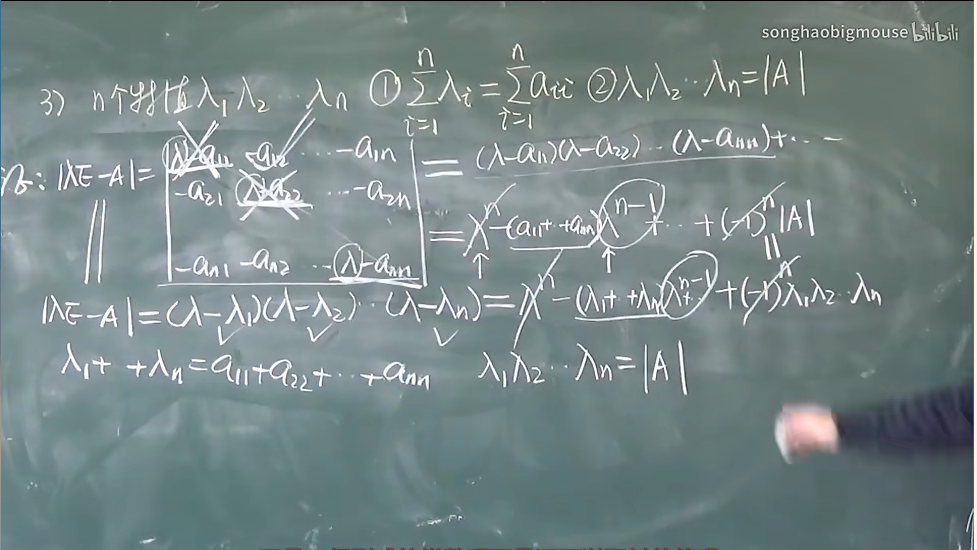 songhaobigmouse bilibili
3) n个特值λ₁ λ₂ ⋯ λn ① ∑ᵢ₌₁ⁿ λi = ∑ᵢ₌₁ⁿ aii ② λ₁λ₂⋯λn=|A|
|λE-A| = | λ-a11 -a12 ⋯ -a1n | = (λ-a11)(λ-a22)⋯(λ-ann)+⋯
-a21 λ-a22 ⋯ -a2n
= λⁿ-(a11+ +ann)λⁿ⁻¹+⋯+(-1)ⁿ|A|
-an1 -an2 ⋯ λ-ann
|λE-A|=(λ-λ₁)(λ-λ₂)⋯(λ-λn)=λⁿ-(λ₁+ +λn)λⁿ⁻¹+⋯+(-1)ⁿλ₁λ₂⋯λn
λ₁+ +λn=a11+a22+⋯+ann λ₁λ₂⋯λn=|A|